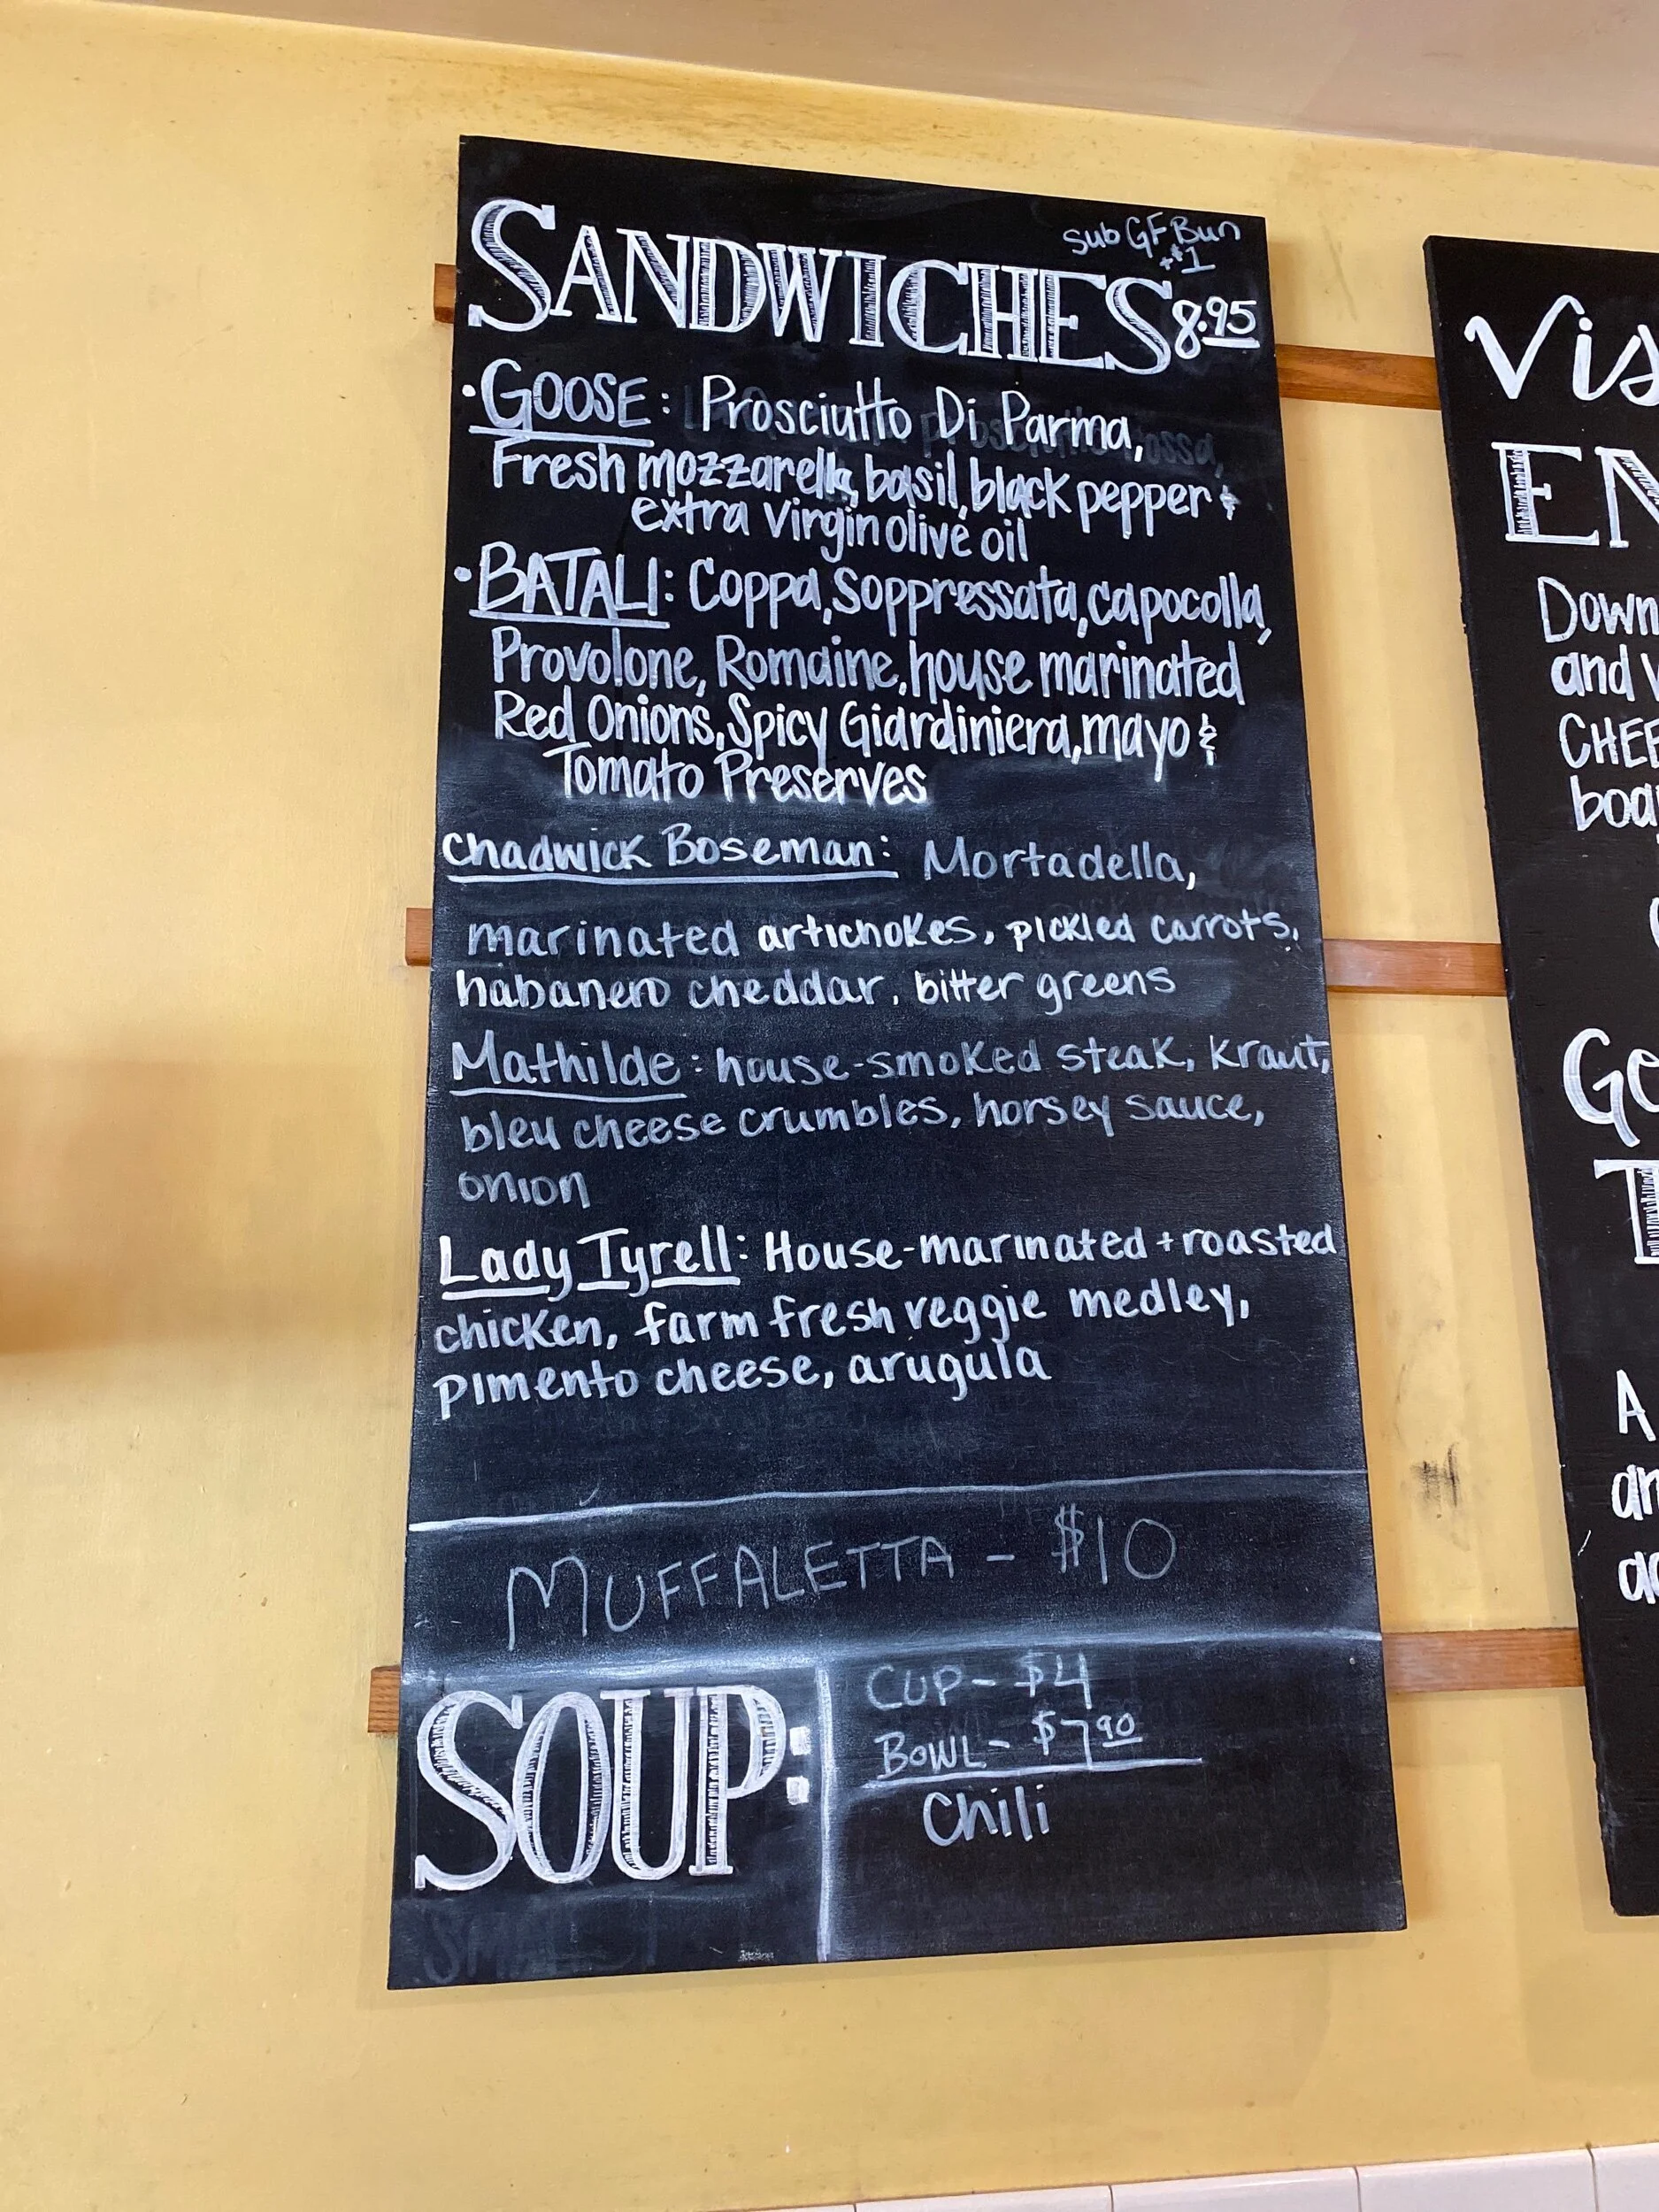 sub GF Bun
+$1
SANDWICHES 8.95
• GOOSE: Prosciutto Di Parma,
Fresh mozzarella, basil, black pepper &
extra virgin olive oil
• BATALI: Coppa, Soppressata, capocolla,
Provolone, Romaine, house marinated
Red Onions, Spicy Giardiniera, mayo &
Tomato Preserves
Chadwick Boseman: Mortadella,
marinated artichokes, pickled carrots,
habanero cheddar, bitter greens
Mathilde: house-smoked steak, kraut,
bleu cheese crumbles, horsey sauce,
onion
Lady Tyrell: House-marinated + roasted
chicken, farm fresh veggie medley,
pimento cheese, arugula
MUFFALETTA - $10
SOUP:
CUP- $4
BOWL- $7.90
Chili
Vis
EN
Down
and
CHEE
boa
Ge
T
A
an